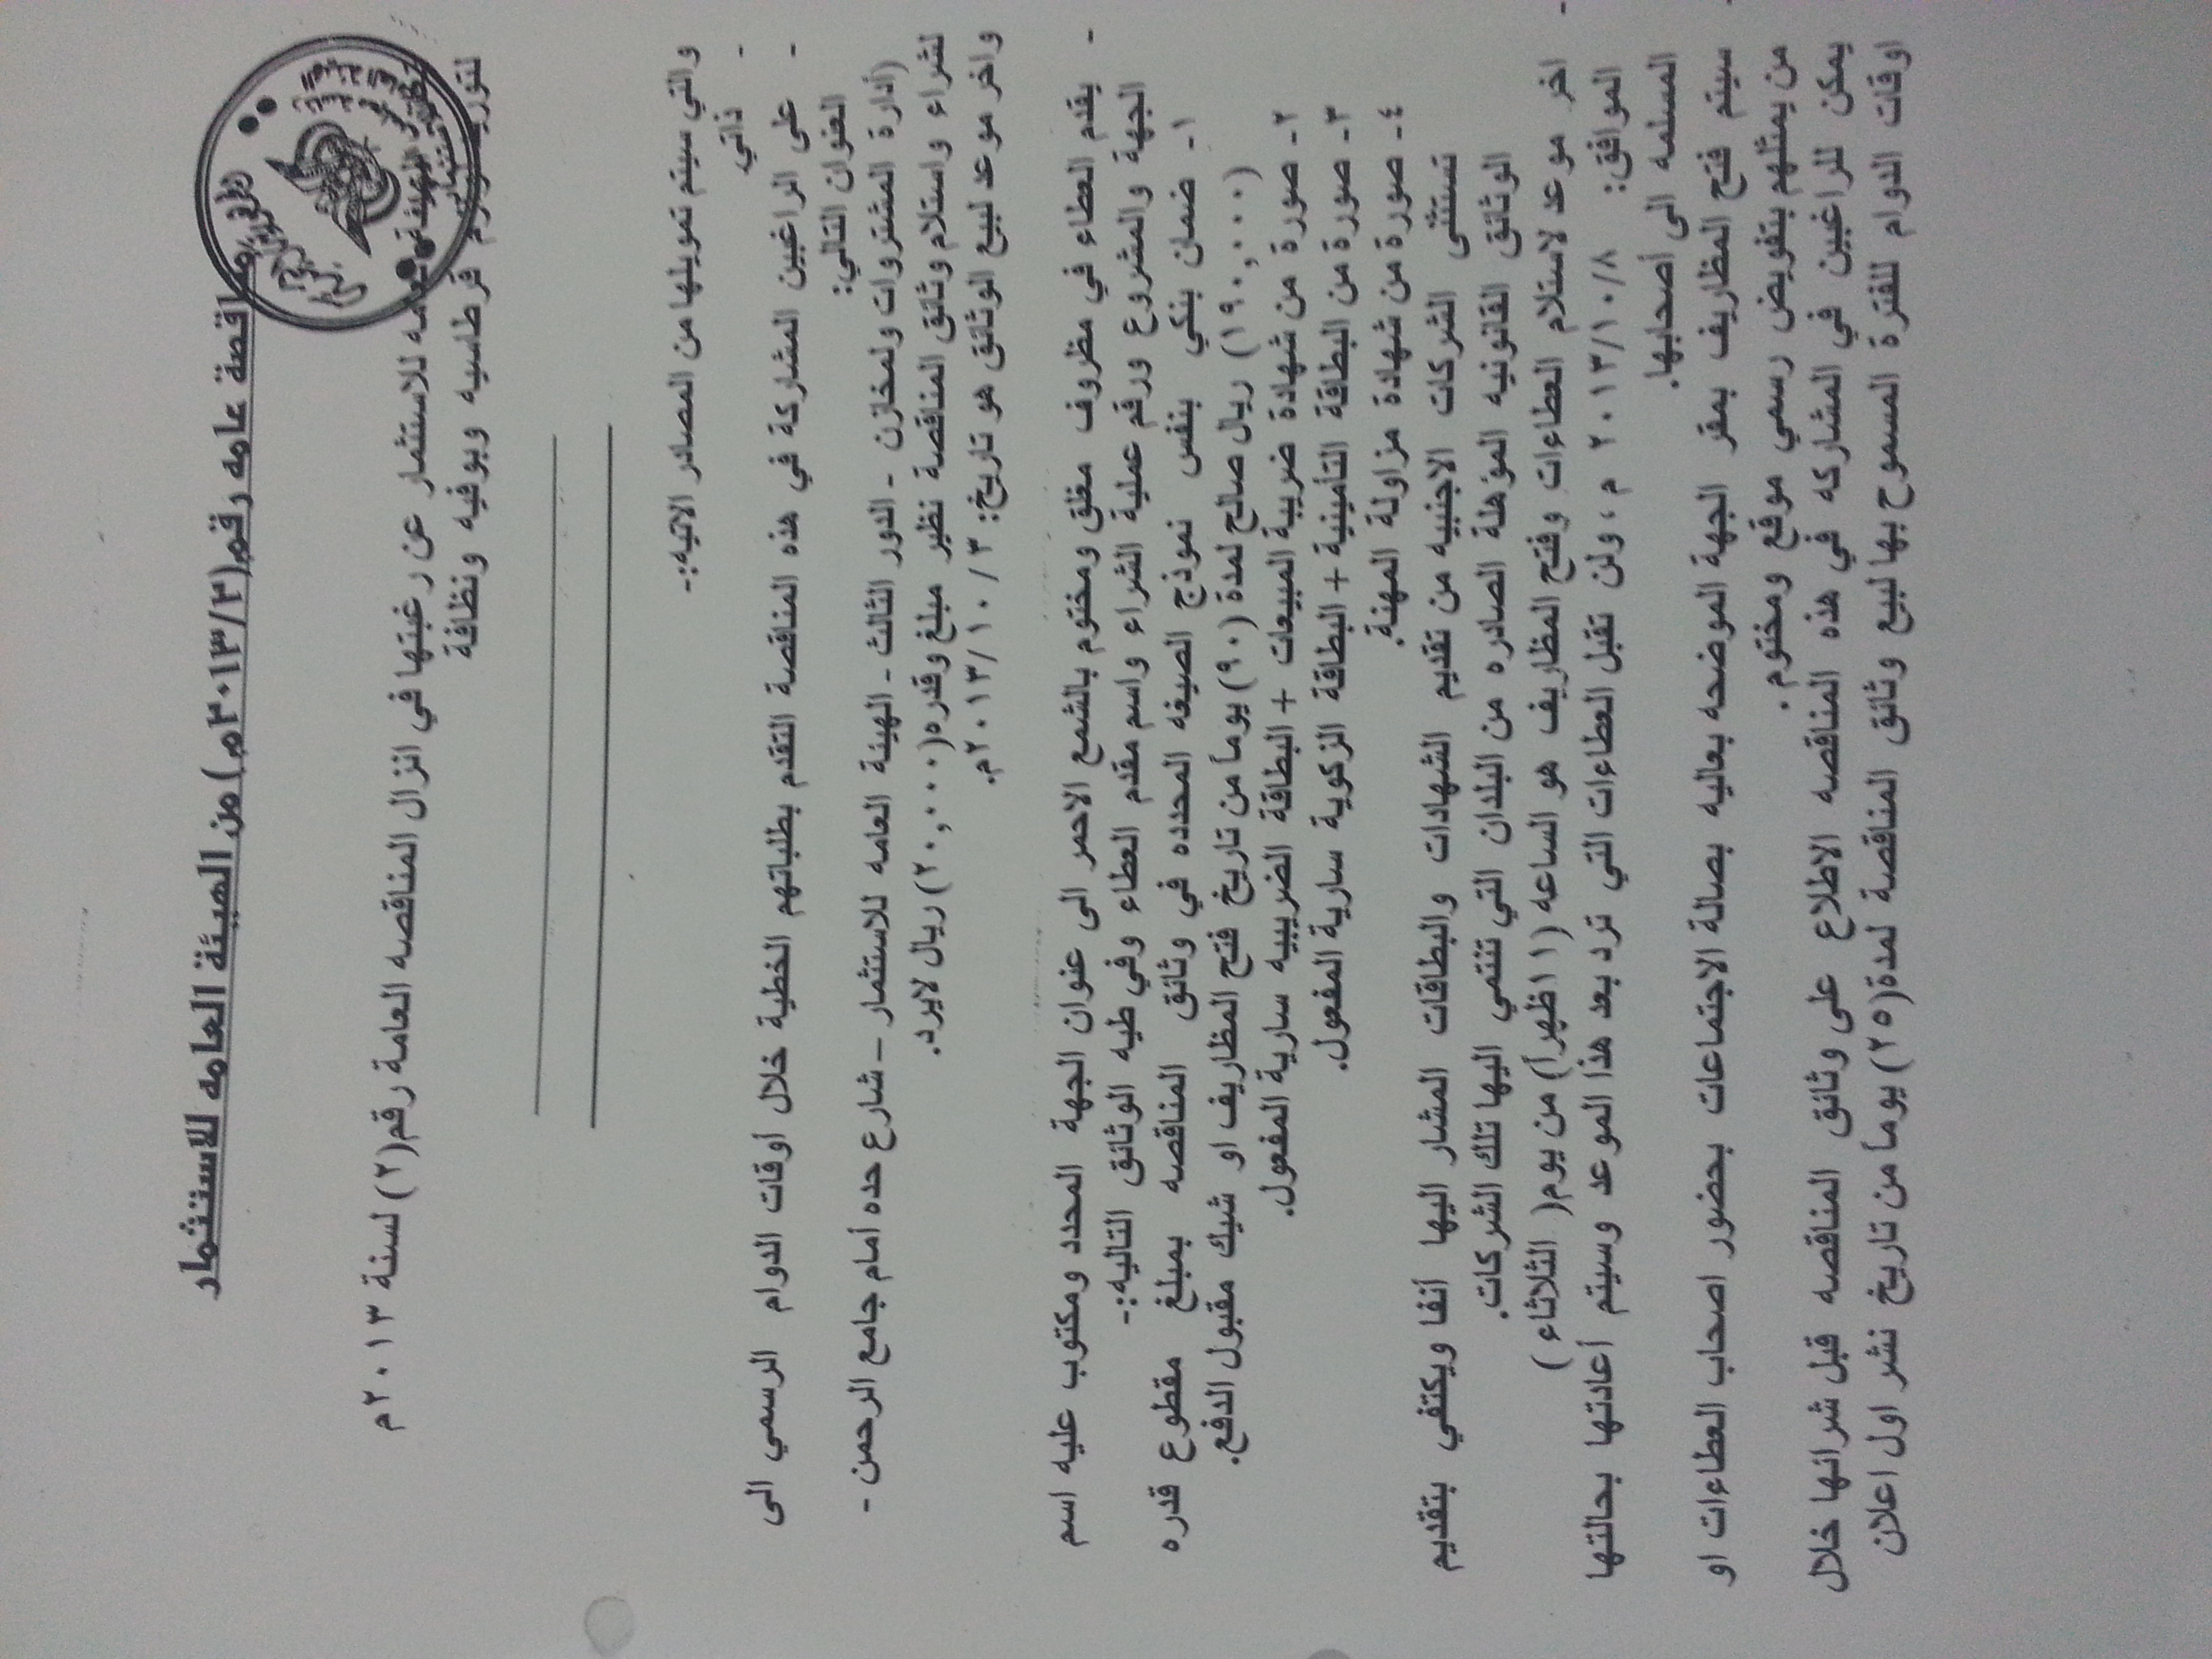 مناقصة عامه رقم(٢/٢٠١٣م) من الهيئة العامه للاستثمار
العامه للاستثمار عن رغبتها في انزال المناقصه العامة رقم(٢) لسنة ٢٠١٣م
لتوريد ولوازم قرطاسيه وبوفيه ونظافة
والتي سيتم تمويلها من المصادر الاتيه:-
- ذاتي
- على الراغبين المشاركة في هذه المناقصة التقدم بطلباتهم الخطية خلال أوقات الدوام الرسمي الى
العنوان التالي:
(أدارة المشتروات ولمخازن - الدور الثالث - الهيئة العامه للاستثمار – شارع حده أمام جامع الرحمن -
لشراء واستلام وثائق المناقصة نظير مبلغ وقدره(٢٠,٠٠٠) ريال لايرد.
واخر موعد لبيع الوثائق هو تاريخ: ٣ /٢٠١٣/١٠م.
- يقدم العطاء في مظروف مغلق ومختوم بالشمع الاحمر الى عنوان الجهة المحدد ومكتوب عليه اسم
الجهة والمشروع ورقم عملية الشراء واسم مقدم العطاء وفي طيه الوثائق التاليه:-
١- ضمان بنكي بنفس نموذج الصيغه المحدده في وثائق المناقصه بمبلغ مقطوع قدره
(١٩٠,٠٠٠) ريال صالح لمدة (٩٠) يوماً من تاريخ فتح المظاريف او شيك مقبول الدفع.
٢- صورة من شهادة ضريبة المبيعات + البطاقة الضريبيه سارية المفعول.
٣- صورة من البطاقة التأمينية + البطاقة الزكوية سارية المفعول.
٤- صورة من شهادة مزاولة المهنة.
تستثنى الشركات الاجنبيه من تقديم الشهادات والبطاقات المشار اليها أنفا ويكتفي بتقديم
الوثائق القانونيه المؤهلة الصادره من البلدان التي تنتمي اليها تلك الشركات.
- اخر موعد لاستلام العطاءات وفتح المظاريف هو الساعه (١١ظهراً) من يوم( الثلاثاء )
الموافق: ٢٠١٣/١٠/٨ م ، ولن تقبل العطاءات التي ترد بعد هذا الموعد وسيتم أعادتها بحالتها
المسلمه الى أصحابها.
- سيتم فتح المظاريف بمقر الجهة الموضحه بعاليه بصالة الاجتماعات بحضور اصحاب العطاءات او
من يمثلهم بتفويض رسمي موقع ومختوم.
يمكن للراغبين في المشاركه في هذه المناقصه الاطلاع على وثائق المناقصه قبل شرائها خلال
اوقات الدوام للفترة المسموح بها لبيع وثائق المناقصة لمدة(٢٥) يوماً من تاريخ نشر اول اعلان